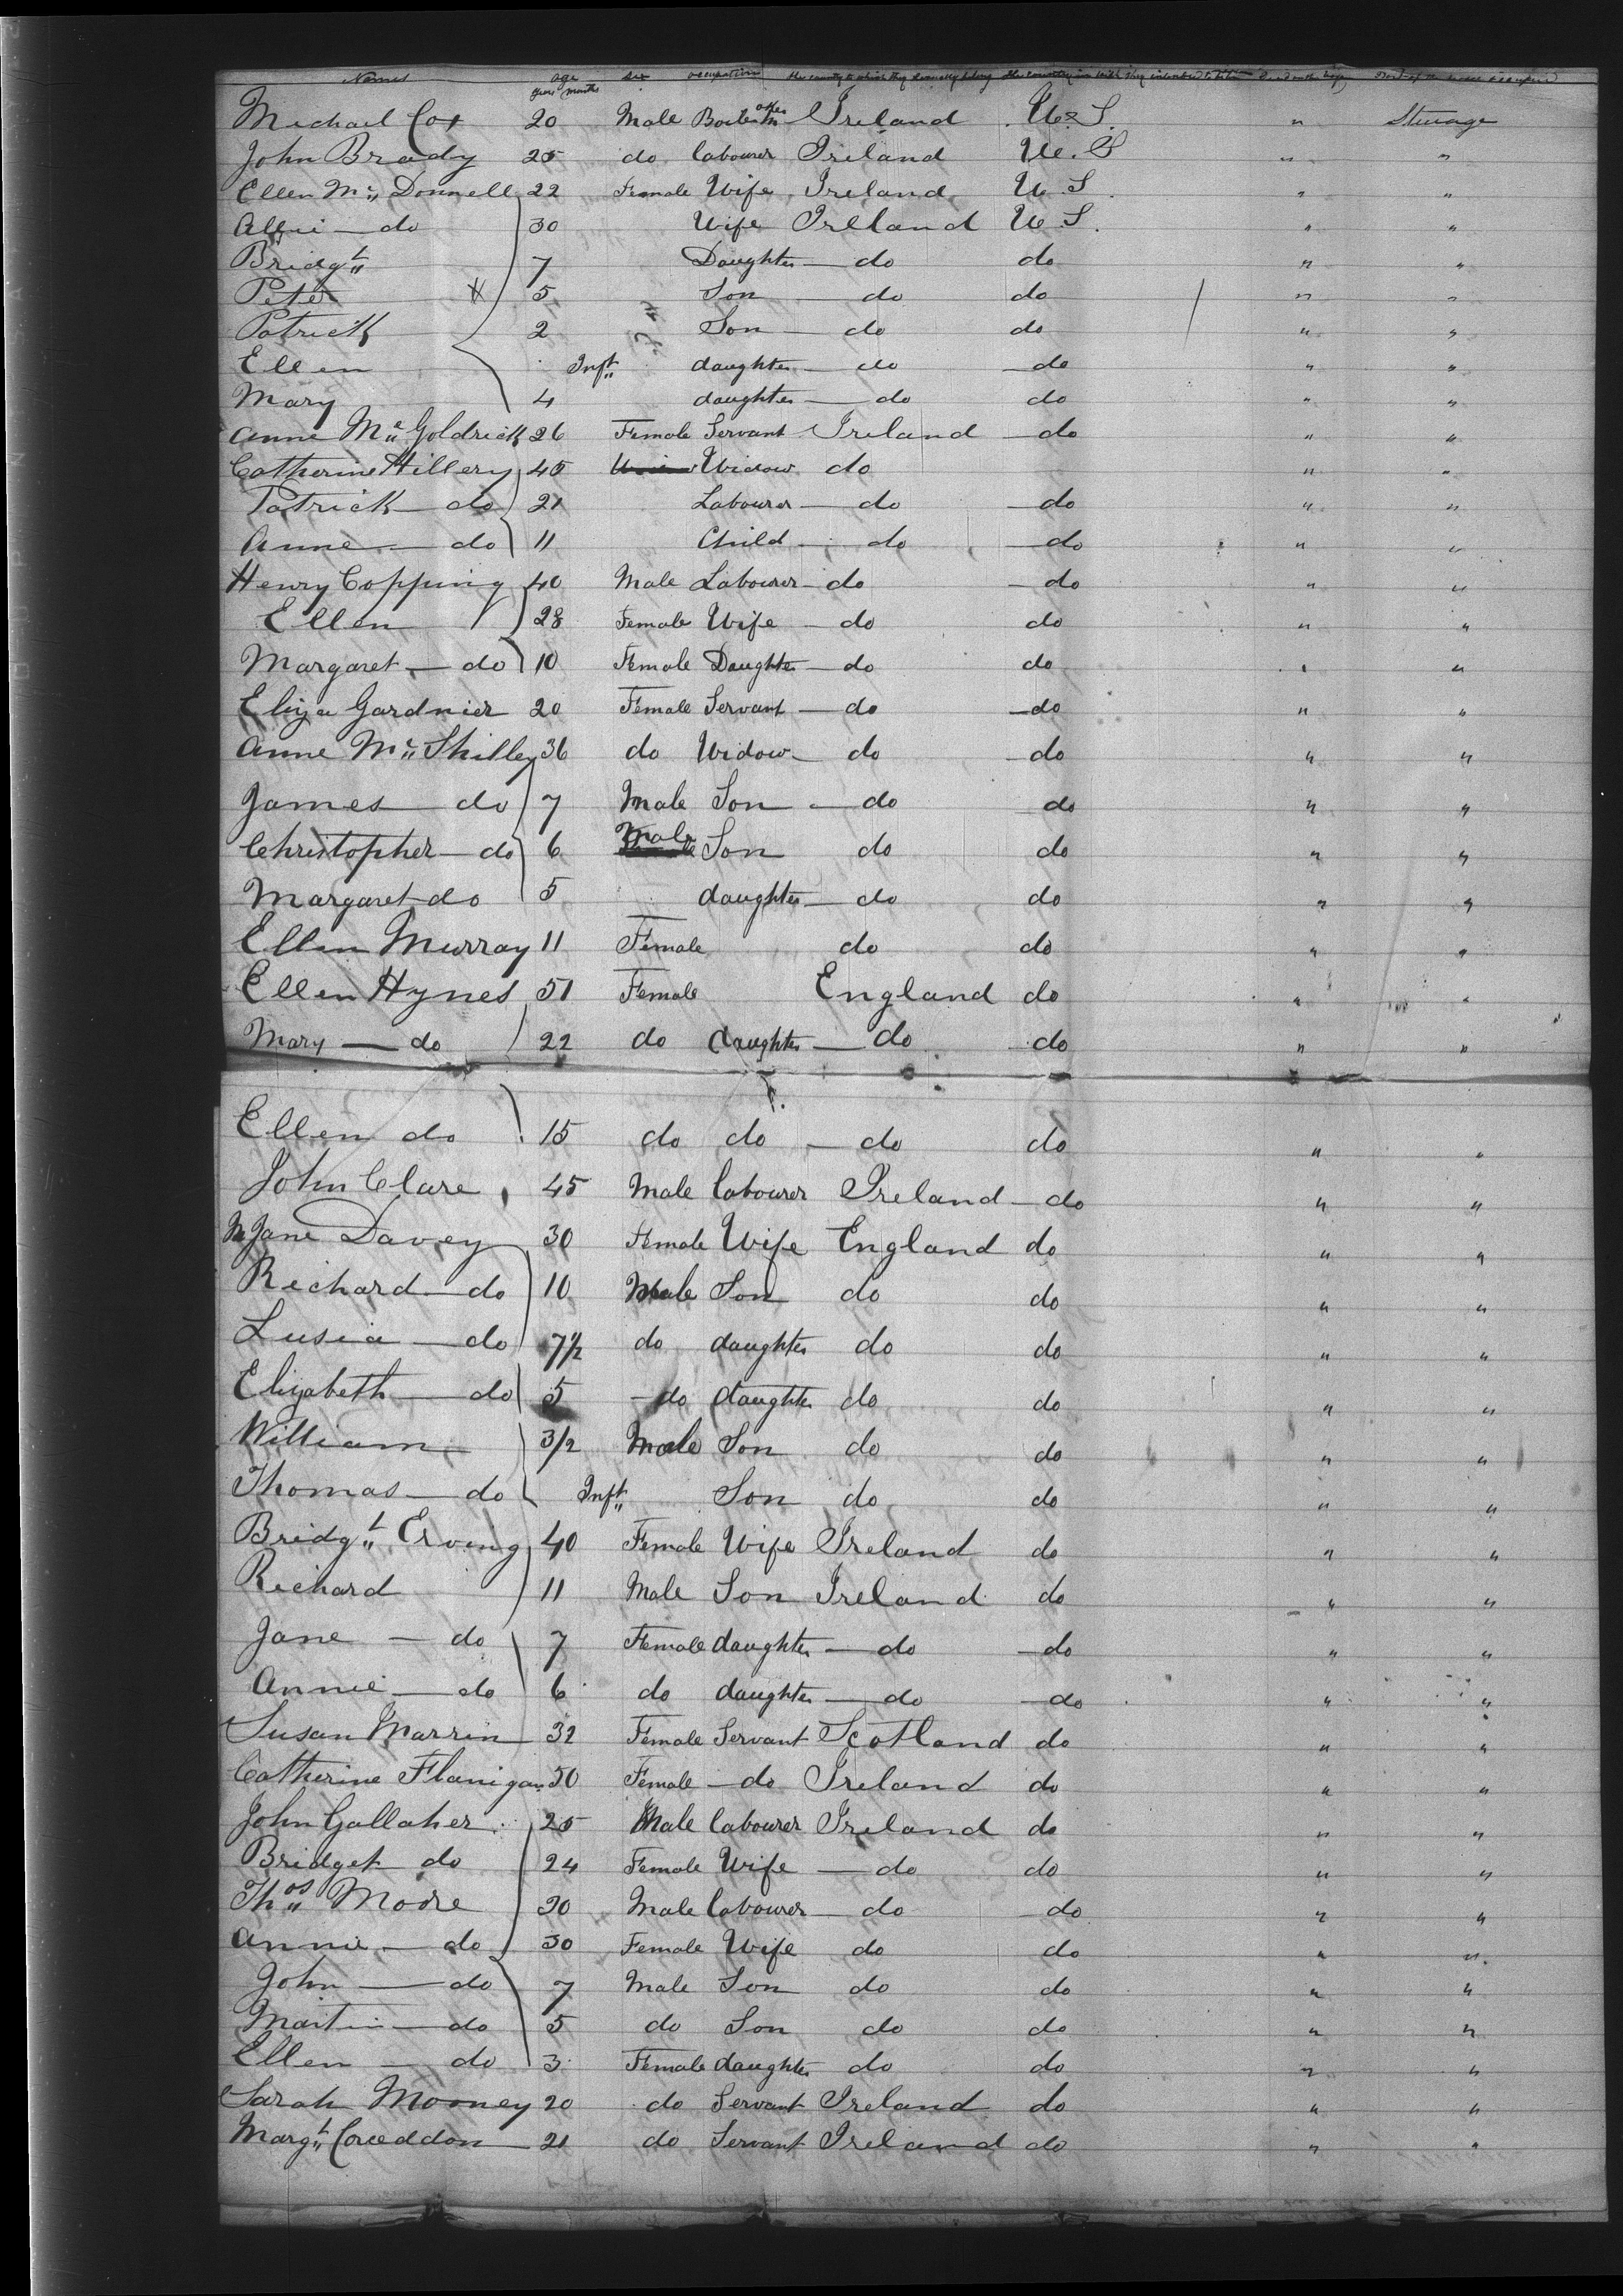 Names age years months sex occupation the country to which they severally belong the country in which they intended to Died on the Part of the vessel occupied
Michael Cox 20 Male Ireland U.S. " Steerage
John Brady 25 do labourer Ireland U.S " "
Ellen Mc,, Donnell 22 Female Wife Ireland U.S " "
do 30 Wife Ireland U.S. " "
Bridgt,, 7 Daughter do do " "
Peter 5 Son do do " "
Patrick 2 Son do do " "
Ellen Inft,, daughter do do " "
Mary 4 daughter do do " "
Anne Mc,, Goldrick 26 Female Servant Ireland do " "
Catherine Hillery 45 Widow do " "
Patrick do 21 Labourer do do " "
Anne do 11 Child do do " "
Henry Copping 40 Male Labourer do do " "
Ellen 28 Female Wife do do " "
Margaret do 10 Female Daughter do do " "
Eliza Gardnier 20 Female Servant do do " "
Anne Mc,, Shilley 36 do Widow do do " "
James do 7 Male Son do do " "
Christopher do 6 Male Son do do " "
Margaret do 5 daughter do do " "
Ellen Murray 11 Female do do " "
Ellen Hynes 51 Female England do " "
Mary do 22 do daughter do do " "
Ellen do 15 do do do do " "
John Clare 45 Male labourer Ireland do " "
Jane Davey 30 Female Wife England do " "
Richard do 10 Male Son do do " "
Lusia do 7½ do daughter do do " "
Elizabeth do 5 do daughter do do " "
William 3/2 Male Son do do " "
Thomas do Inft,, Son do do " "
Bridgt,, Erving 40 Female Wife Ireland do " "
Richard 11 Male Son Ireland do " "
Jane do 7 Female daughter do do " "
Annie do 6 do daughter do do " "
Susan Marrin 32 Female Servant Scotland do " "
Catherine Flanigan 50 Female do Ireland do " "
John Gallaher 25 Male labourer Ireland do " "
Bridget do 24 Female Wife do do " "
Thos,, Moore 30 Male labourer do do " "
Annie do 30 Female Wife do do " "
John do 7 Male Son do do " "
Martin do 5 do Son do do " "
Ellen do 3 Female daughter do do " "
Sarah Mooney 20 do Servant Ireland do " "
Margt,, 21 do Servant Ireland do " "